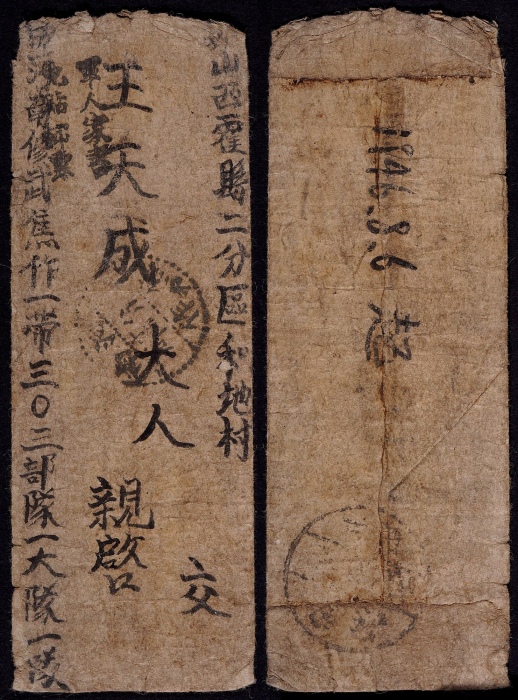 山西霍縣二分區和地村
交
王天成大人
親啓
軍人家書
修武焦作一带三〇二部隊一大隊一隊
1946.8.6